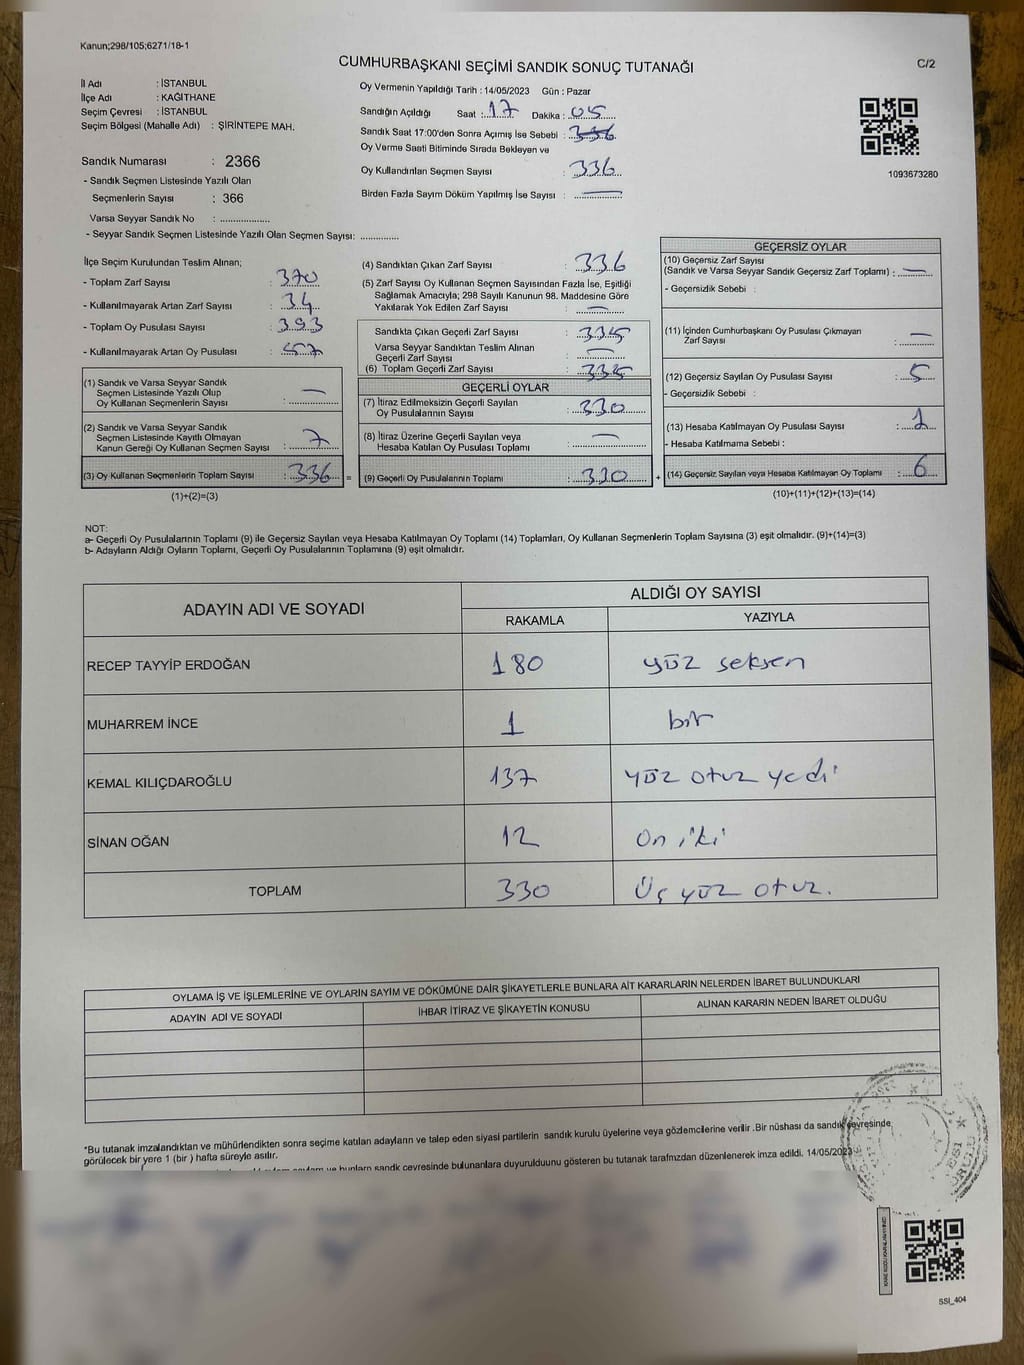 Kanun;298/105;6271/18-1
CUMHURBAŞKANI SEÇİMİ SANDIK SONUÇ TUTANAĞI
C/2
İl Adı : İSTANBUL
İlçe Adı : KAĞITHANE
Seçim Çevresi : İSTANBUL
Seçim Bölgesi (Mahalle Adı) : ŞİRİNTEPE MAH.
Sandık Numarası : 2366
- Sandık Seçmen Listesinde Yazılı Olan
Seçmenlerin Sayısı : 366
Varsa Seyyar Sandık No : ....................
- Seyyar Sandık Seçmen Listesinde Yazılı Olan Seçmen Sayısı: ...............
Oy Vermenin Yapıldığı Tarih : 14/05/2023 Gün : Pazar
Sandığın Açıldığı Saat : 17 Dakika : 05
Sandık Saat 17:00'den Sonra Açımış İse Sebebi : 336
Oy Verme Saati Bitiminde Sırada Bekleyen ve
Oy Kullandırılan Seçmen Sayısı : 336
Birden Fazla Sayım Döküm Yapılmış İse Sayısı : —
1093673280
İlçe Seçim Kurulundan Teslim Alınan;
- Toplam Zarf Sayısı : 370
- Kullanılmayarak Artan Zarf Sayısı : 34
- Toplam Oy Pusulası Sayısı : 393
- Kullanılmayarak Artan Oy Pusulası : 57
(1) Sandık ve Varsa Seyyar Sandık
Seçmen Listesinde Yazılı Olup
Oy Kullanan Seçmenlerin Sayısı : —
(2) Sandık ve Varsa Seyyar Sandık
Seçmen Listesinde Kayıtlı Olmayan
Kanun Gereği Oy Kullanan Seçmen Sayısı : 7
(3) Oy Kullanan Seçmenlerin Toplam Sayısı : 336 =
(1)+(2)=(3)
(4) Sandıktan Çıkan Zarf Sayısı : 336
(5) Zarf Sayısı Oy Kullanan Seçmen Sayısından Fazla İse, Eşitliği
Sağlamak Amacıyla; 298 Sayılı Kanunun 98. Maddesine Göre
Yakılarak Yok Edilen Zarf Sayısı : —
Sandıkta Çıkan Geçerli Zarf Sayısı : 335
Varsa Seyyar Sandıktan Teslim Alınan
Geçerli Zarf Sayısı : —
(6) Toplam Geçerli Zarf Sayısı : 335
GEÇERLİ OYLAR
(7) İtiraz Edilmeksizin Geçerli Sayılan
Oy Pusulalarının Sayısı : 330
(8) İtiraz Üzerine Geçerli Sayılan veya
Hesaba Katılan Oy Pusulası Toplamı : —
(9) Geçerli Oy Pusulalarının Toplamı : 330 +
GEÇERSİZ OYLAR
(10) Geçersiz Zarf Sayısı
(Sandık ve Varsa Seyyar Sandık Geçersiz Zarf Toplamı) : —
- Geçersizlik Sebebi :
(11) İçinden Cumhurbaşkanı Oy Pusulası Çıkmayan
Zarf Sayısı : —
(12) Geçersiz Sayılan Oy Pusulası Sayısı : 5
- Geçersizlik Sebebi :
(13) Hesaba Katılmayan Oy Pusulası Sayısı : 1
- Hesaba Katılmama Sebebi :
(14) Geçersiz Sayılan veya Hesaba Katılmayan Oy Toplamı : 6
(10)+(11)+(12)+(13)=(14)
NOT:
a- Geçerli Oy Pusulalarının Toplamı (9) ile Geçersiz Sayılan veya Hesaba Katılmayan Oy Toplamı (14) Toplamları, Oy Kullanan Seçmenlerin Toplam Sayısına (3) eşit olmalıdır. (9)+(14)=(3)
b- Adayların Aldığı Oyların Toplamı, Geçerli Oy Pusulalarının Toplamına (9) eşit olmalıdır.
ADAYIN ADI VE SOYADI
ALDIĞI OY SAYISI
RAKAMLA YAZIYLA
RECEP TAYYİP ERDOĞAN 180 yüz seksen
MUHARREM İNCE 1 bir
KEMAL KILIÇDAROĞLU 137 yüz otuz yedi
SİNAN OĞAN 12 On iki
TOPLAM 330 Üç yüz otuz.
OYLAMA İŞ VE İŞLEMLERİNE VE OYLARIN SAYIM VE DÖKÜMÜNE DAİR ŞİKAYETLERLE BUNLARA AİT KARARLARIN NELERDEN İBARET BULUNDUKLARI
ADAYIN ADI VE SOYADI İHBAR İTİRAZ VE ŞİKAYETİN KONUSU ALINAN KARARIN NEDEN İBARET OLDUĞU
*Bu tutanak imzalandıktan ve mühürlendikten sonra seçime katılan adayların ve talep eden siyasi partilerin sandık kurulu üyelerine veya gözlemcilerine verilir .Bir nüshası da sandık çevresinde
görülecek bir yere 1 (bir ) hafta süreyle asılır.
ve bunların sandık çevresinde bulunanlara duyurulduunu gösteren bu tutanak tarafımızdan düzenlenerek imza edildi. 14/05/2023
SSİ_404